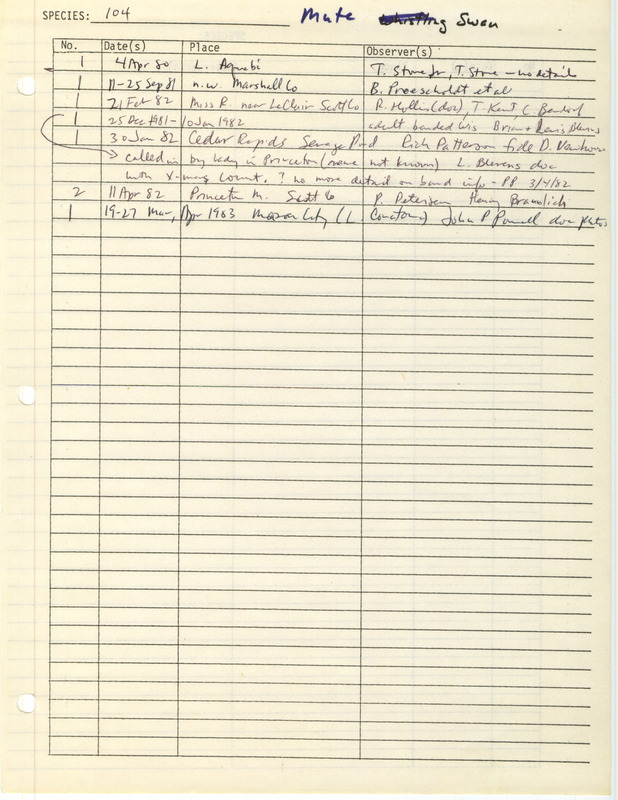 SPECIES: 104 Mute Swan
No. Date(s) Place Observer(s)
1 4 Apr 80 L. Aquabi T. Stone Jr, T. Stone - no detail
1 11-25 Sep 81 n.w. Marshall Co B. Proescholdt et al
1 21 Feb 82 Miss R. near LeClair Scott Co R. Hollis (doc), T. Kent C. Bendorf
1 25 Dec 1981 - 10 Jan 1982 adult banded Wis Brian + Blevins
1 30 Jan 82 Cedar Rapids Sewage Pond Rich Patterson fide D.
called in by lady in Princeton (name not known) L. Blevins doc
with X-mas Count. ? no more detail on band info - PP 3/4/82
2 11 Apr 82 Princeton M. Scott Co P. Petersen Henry
1 19-27 Mar, Apr 1983 Mason City (L. ) John P doc photos